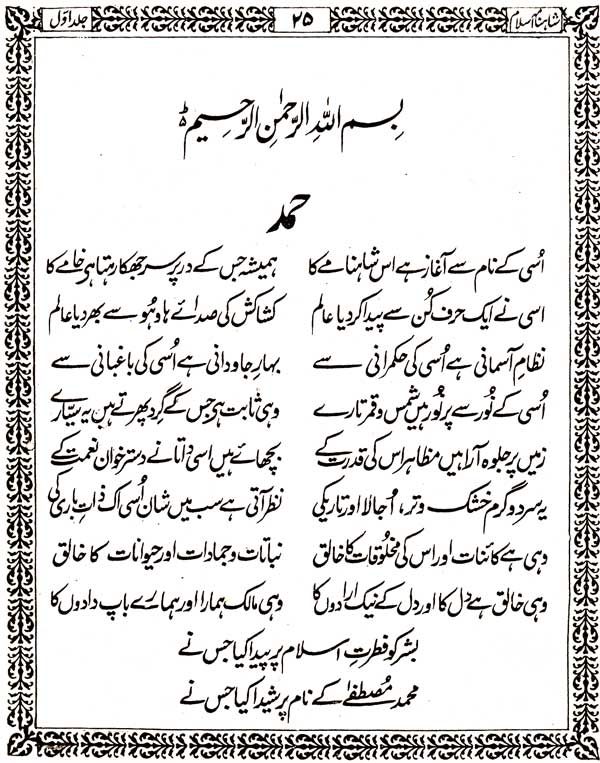 شاہنامہ اسلام ۲۵ جلد اوّل
بِسم اللہِ الرّحمٰنِ الرّحِیم ؕ
حمد
اُسی کے نام سے آغاز ہے اس شاہنامے کا ہمیشہ جس کے در پر سر جھکا رہتا ہی خامے کا
اسی نے ایک حرف کُن سے پیدا کر دیا عالم کشاکش کی صدائے ہاو ہُو سے بھر دیا عالم
نظامِ آسمانی ہے اُسی کی حکمرانی سے بہارِ جاودانی ہے اُسی کی باغبانی سے
اُسی کے نُور سے پر نُور ہیں شمس و قمر تارے وہی ثابت ہی جس کے گِرد پھرتے ہیں یہ سیّارے
زمیں پر جلوہ آرا ہیں مظاہر اس کی قدرت کے بچھائے ہیں اسی داتا نے دسترخوان نعمت کے
یہ سرد و گرم خشک و تر، اُجالا اور تاریکی نظر آتی ہے سب میں شان اُسی اک ذاتِ باری کی
وہی ہے کائنات اور اس کی مخلوقات کا خالق نباتات و جمادات اور حیوانات کا خالق
وہی خالق ہے دل کا اور دل کے نیک ارادوں کا وہی مالک ہمارا اور ہمارے باپ دادوں کا
بشر کو فطرتِ اسلام پر پیدا کیا جس نے
محمد مُصطفےٰ کے نام پر شیدا کیا جس نے